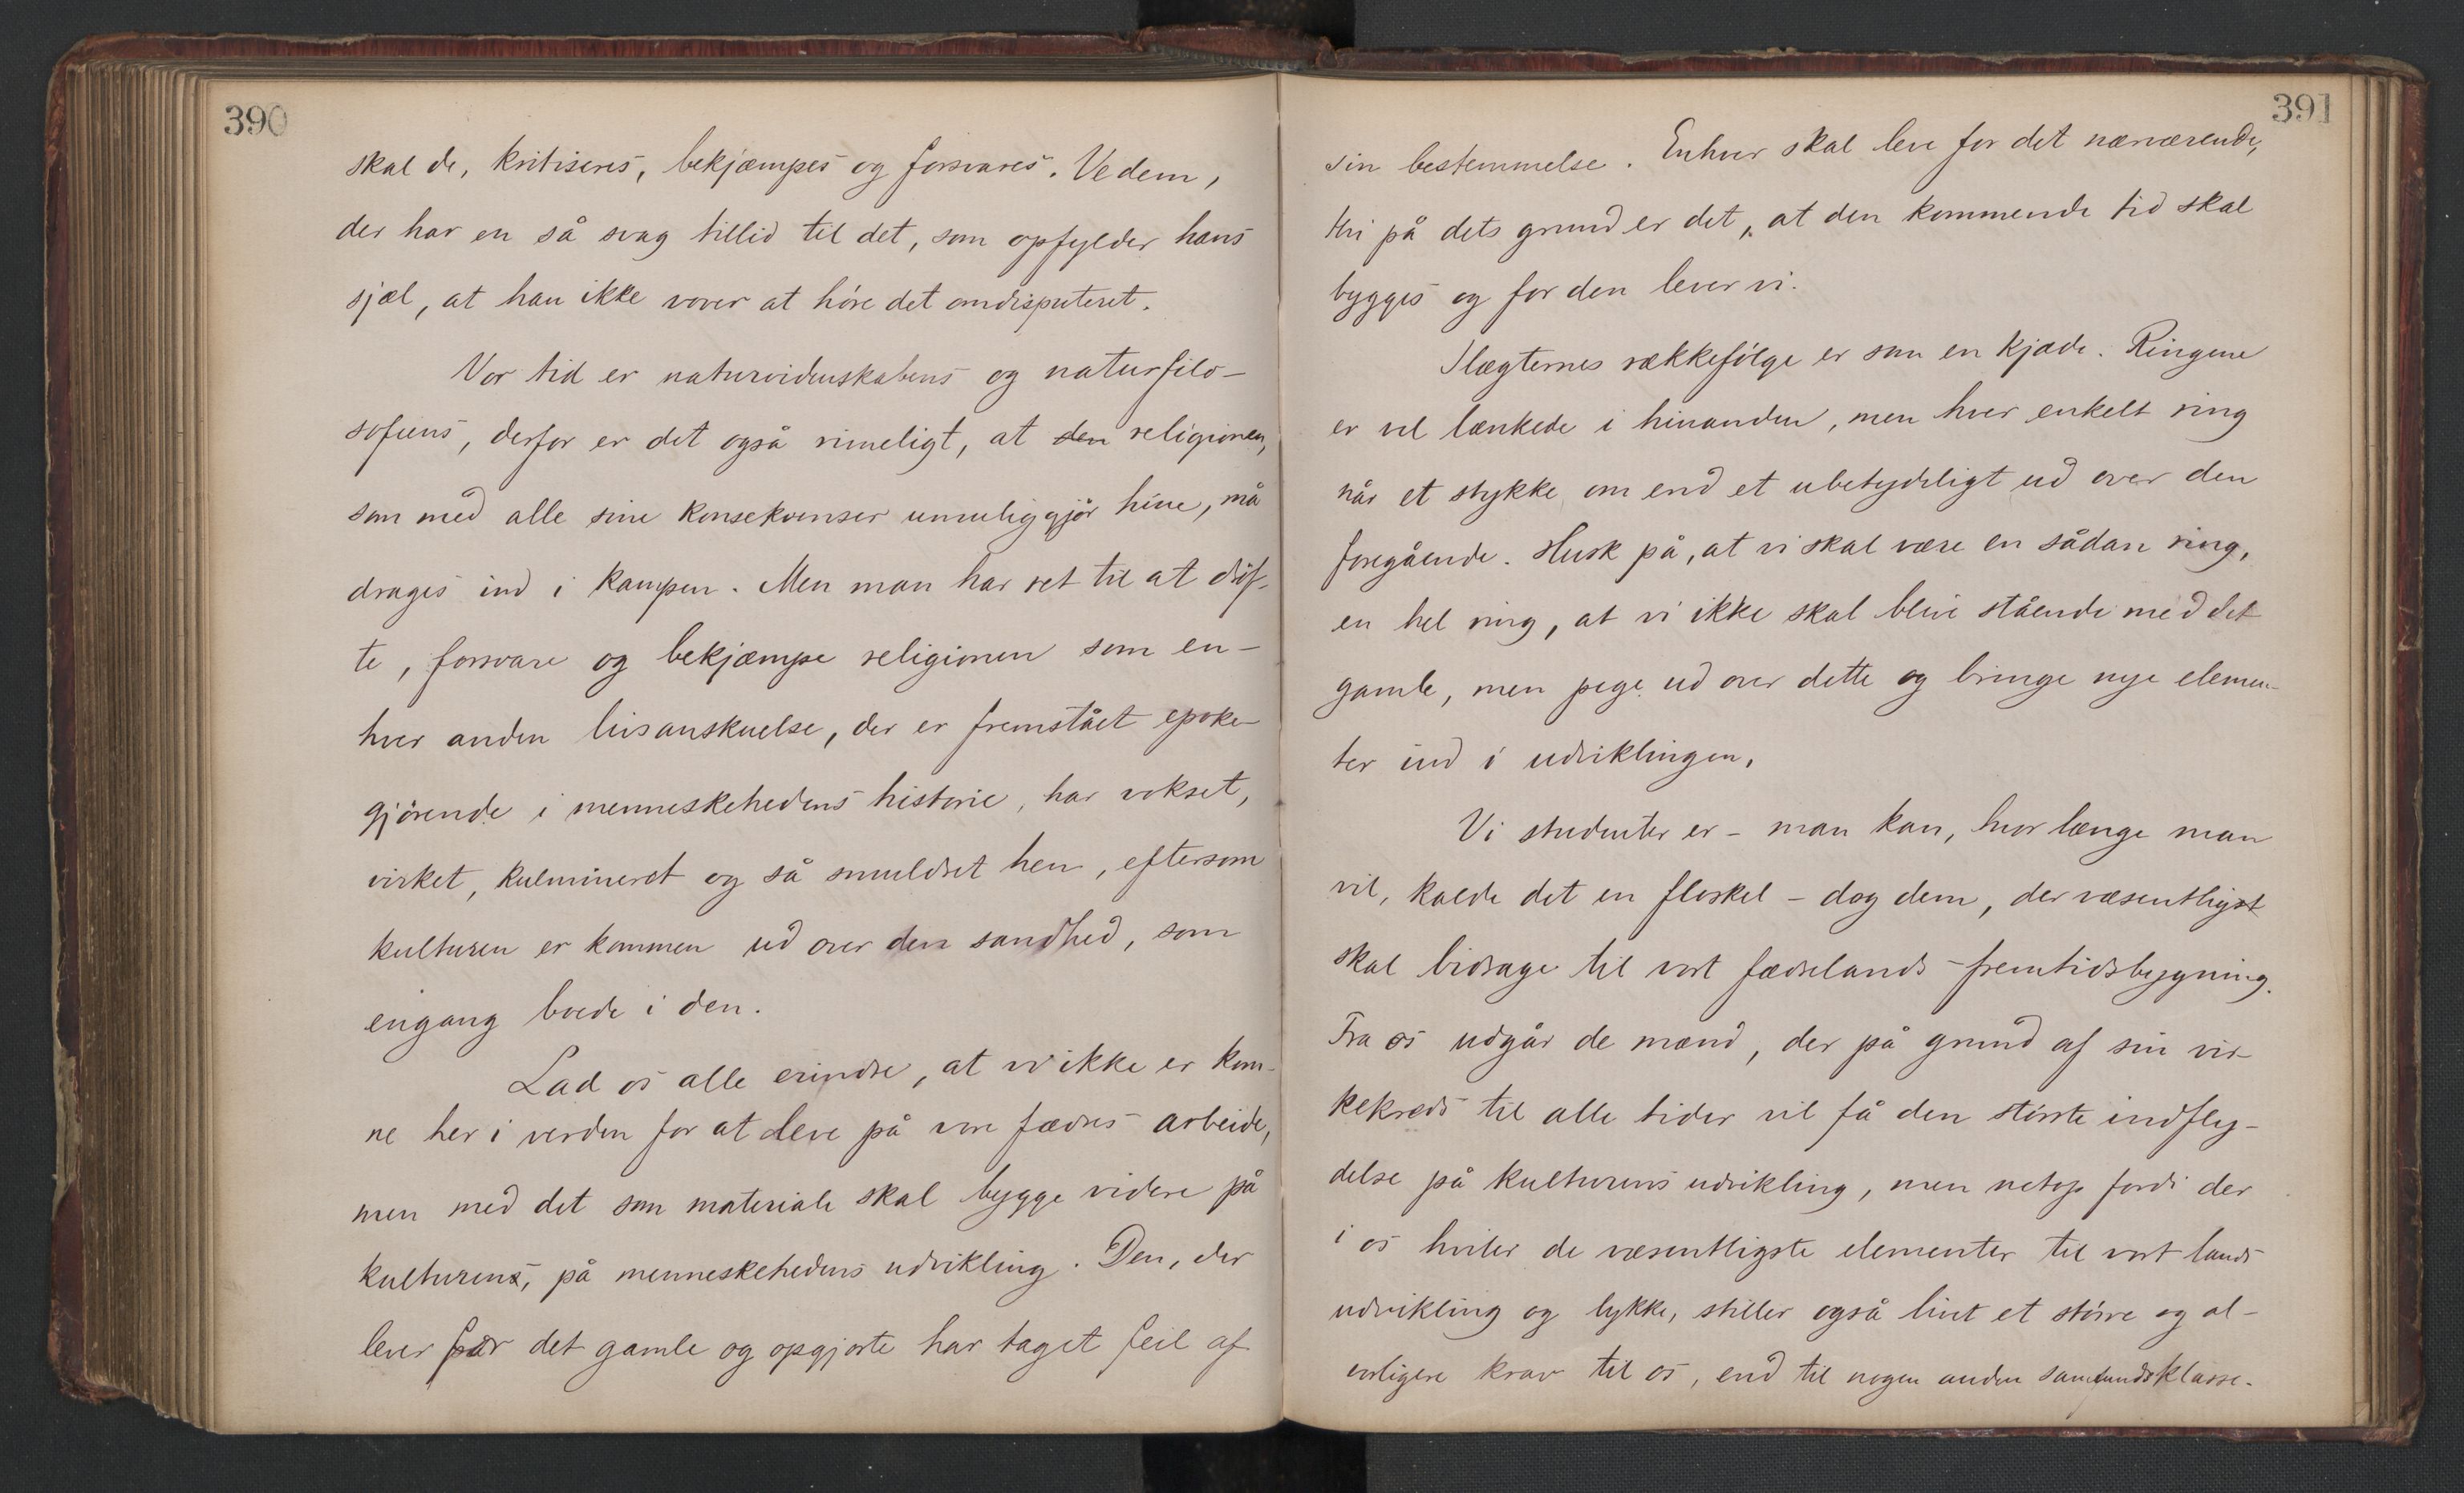 390
skal de, kritiseres, bekjæmpes og forsvares. Ve dem,
der har en så svag tillid til det, som opfylder hans
sjæl, at han ikke vover at høre det omdisputeret.
Vor tid er naturvidenskabens og naturfilo-
sofiens, derfor er det også rimeligt, at den religionen,
som med alle sine konsekvenser umuliggjør hine, må
drages ind i kampen. Men man har ret til at drøf-
te, forsvare og bekjæmpe religionen som en-
hver anden livsanskuelse, der er fremstået epoke-
gjørende i menneskehedens historie, har vokset,
virket, kulmineret og så smuldret hen, eftersom
kulturen er kommen ud over den sandhed, som
engang boede i den.
Lad os alle erindre, at vi ikke er kom-
ne her i verden for at leve på vore fædres arbeide,
men med det som materiale skal bygge videre på
kulturens, på menneskehedens udvikling. Den, der
lever for det gamle og opgjorte har taget feil af
391
sin bestemmelse. Enhver skal leve for det nærværende,
thi på dets grund er det, at den kommende tid skal
bygges og for den lever vi.
Slægternes rækkefølge er som en kjæde. Ringene
er vel lænkede i hinanden, men hver enkelt ring
når et stykke om end et ubetydeligt ud over den
foregående. Husk på, at vi skal være en sådan ring,
en hel ring, at vi ikke skal blive stående med det
gamle, men pege ud over dette og bringe nye elemen-
ter ind i udviklingen.
Vi studenter er - man kan, hvor længe man
vil, kalde det en floskel - dog dem, der væsentligst
skal bidrage til vort fædrelands fremtidsbygning.
Fra os udgår de mænd, der på grund af sin vir-
kekreds til alle tider vil få den største indfly-
delse på kulturens udvikling, men netop fordi der
i os hviler de væsentligste elementer til vort lands
udvikling og lykke, stiller også livet et større og al-
vorligere krav til os, end til nogen anden samfundsklasse.